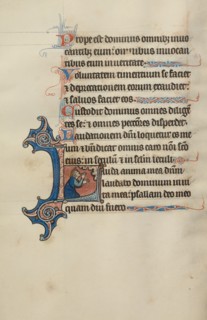 Prope est dominus omnibus inuo
cantibus eum: omnibus inuocan
tibus eum in ueritate.
Voluntatem timentium se faciet
et deprecationem eorum exaudiet:
et saluos faciet eos.
Custodit dominus omnes diligen
tes se: et omnes peccatores disperdet.
Laudationem domini loquetur os me
um: et benedicat omnis caro nomini sco
eius: in seculum et in seculum seculi.
Lauda anima mea dominum
laudabo dominum in ui
ta mea: psallam deo meo
quam diu fuero